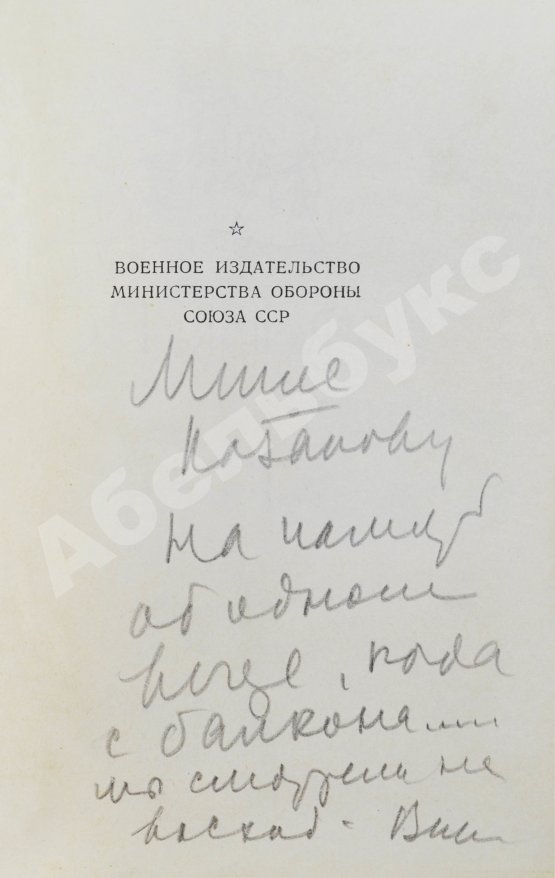 ☆
ВОЕННОЕ ИЗДАТЕЛЬСТВО
МИНИСТЕРСТВА ОБОРОНЫ
СОЮЗА ССР
Мише
На память
об одном
, когда
с балкона....
мы смотрели на
восход -
Абельбукс